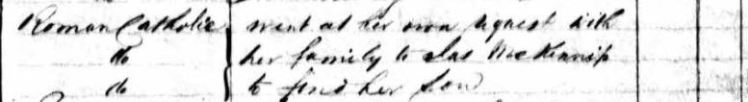 Roman Catholic went at her own request with
do her family to Jas McKinnip
do to find her Son